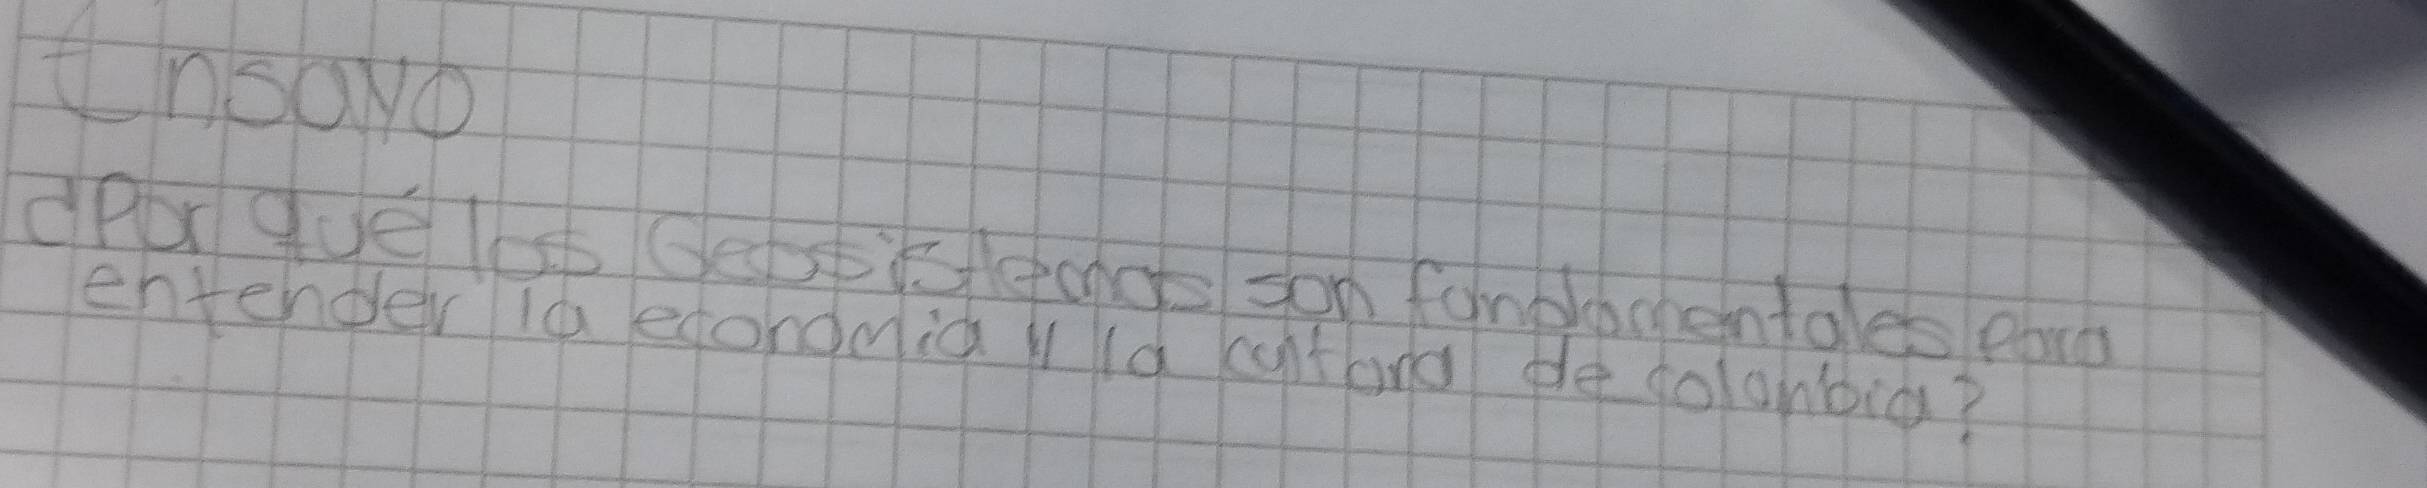 Ensayo
¿Por qué los Geosistemas son fundamentales para
entender la economia y la cultura de colombia?